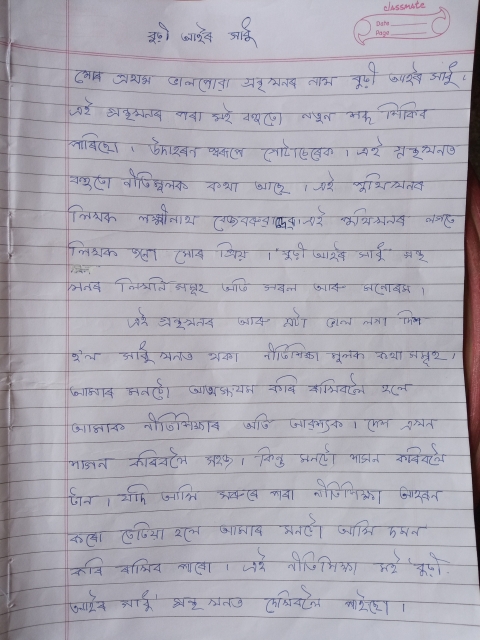 classmate
Date
Page
বুঢ়ী আইৰ সাধু
মোৰ প্ৰথম ভালপোৱা গ্ৰন্থখনৰ নাম বুঢ়ী আইৰ সাধু।
এই গ্ৰন্থখনৰ পৰা মই বহুতো নতুন শব্দ শিকিব
পাৰিছো। উদাহৰণ স্বৰূপে গোটাচেৰেক। এই গ্ৰন্থখনত
বহুতো নীতিমূলক কথা আছে। এই পুথিখনৰ
লিখক লক্ষ্মীনাথ বেজবৰুৱাদেৱ। এই পুথিখনৰ লগতে
লিখক হলো মোৰ প্ৰিয়। 'বুঢ়ী আইৰ সাধু' গ্ৰন্থ
খনৰ লিখনি সমূহ অতি সৰল আৰু মনোৰম।
এই গ্ৰন্থখনৰ আৰু এটা ভাল লগা দিশ
হ'ল সাধু খনত থকা নীতিশিক্ষা মূলক কথা সমূহ।
আমাৰ মনটো আত্মসংযম কৰি ৰাখিবলৈ হলে
আমাক নীতিশিক্ষাৰ অতি আৱশ্যক। দেশ এখন
শাসন কৰিবলৈ সহজ। কিন্তু মনটো শাসন কৰিবলৈ
টান। যদি আমি সৰুৰে পৰা নীতিশিক্ষা আহৰণ
কৰো তেতিয়া হলে আমাৰ মনটো আমি দমন
কৰি ৰাখিব পাৰো। এই নীতিশিক্ষা মই 'বুঢ়ী
আইৰ সাধু' গ্ৰন্থ খনত দেখিবলৈ পাইছো।